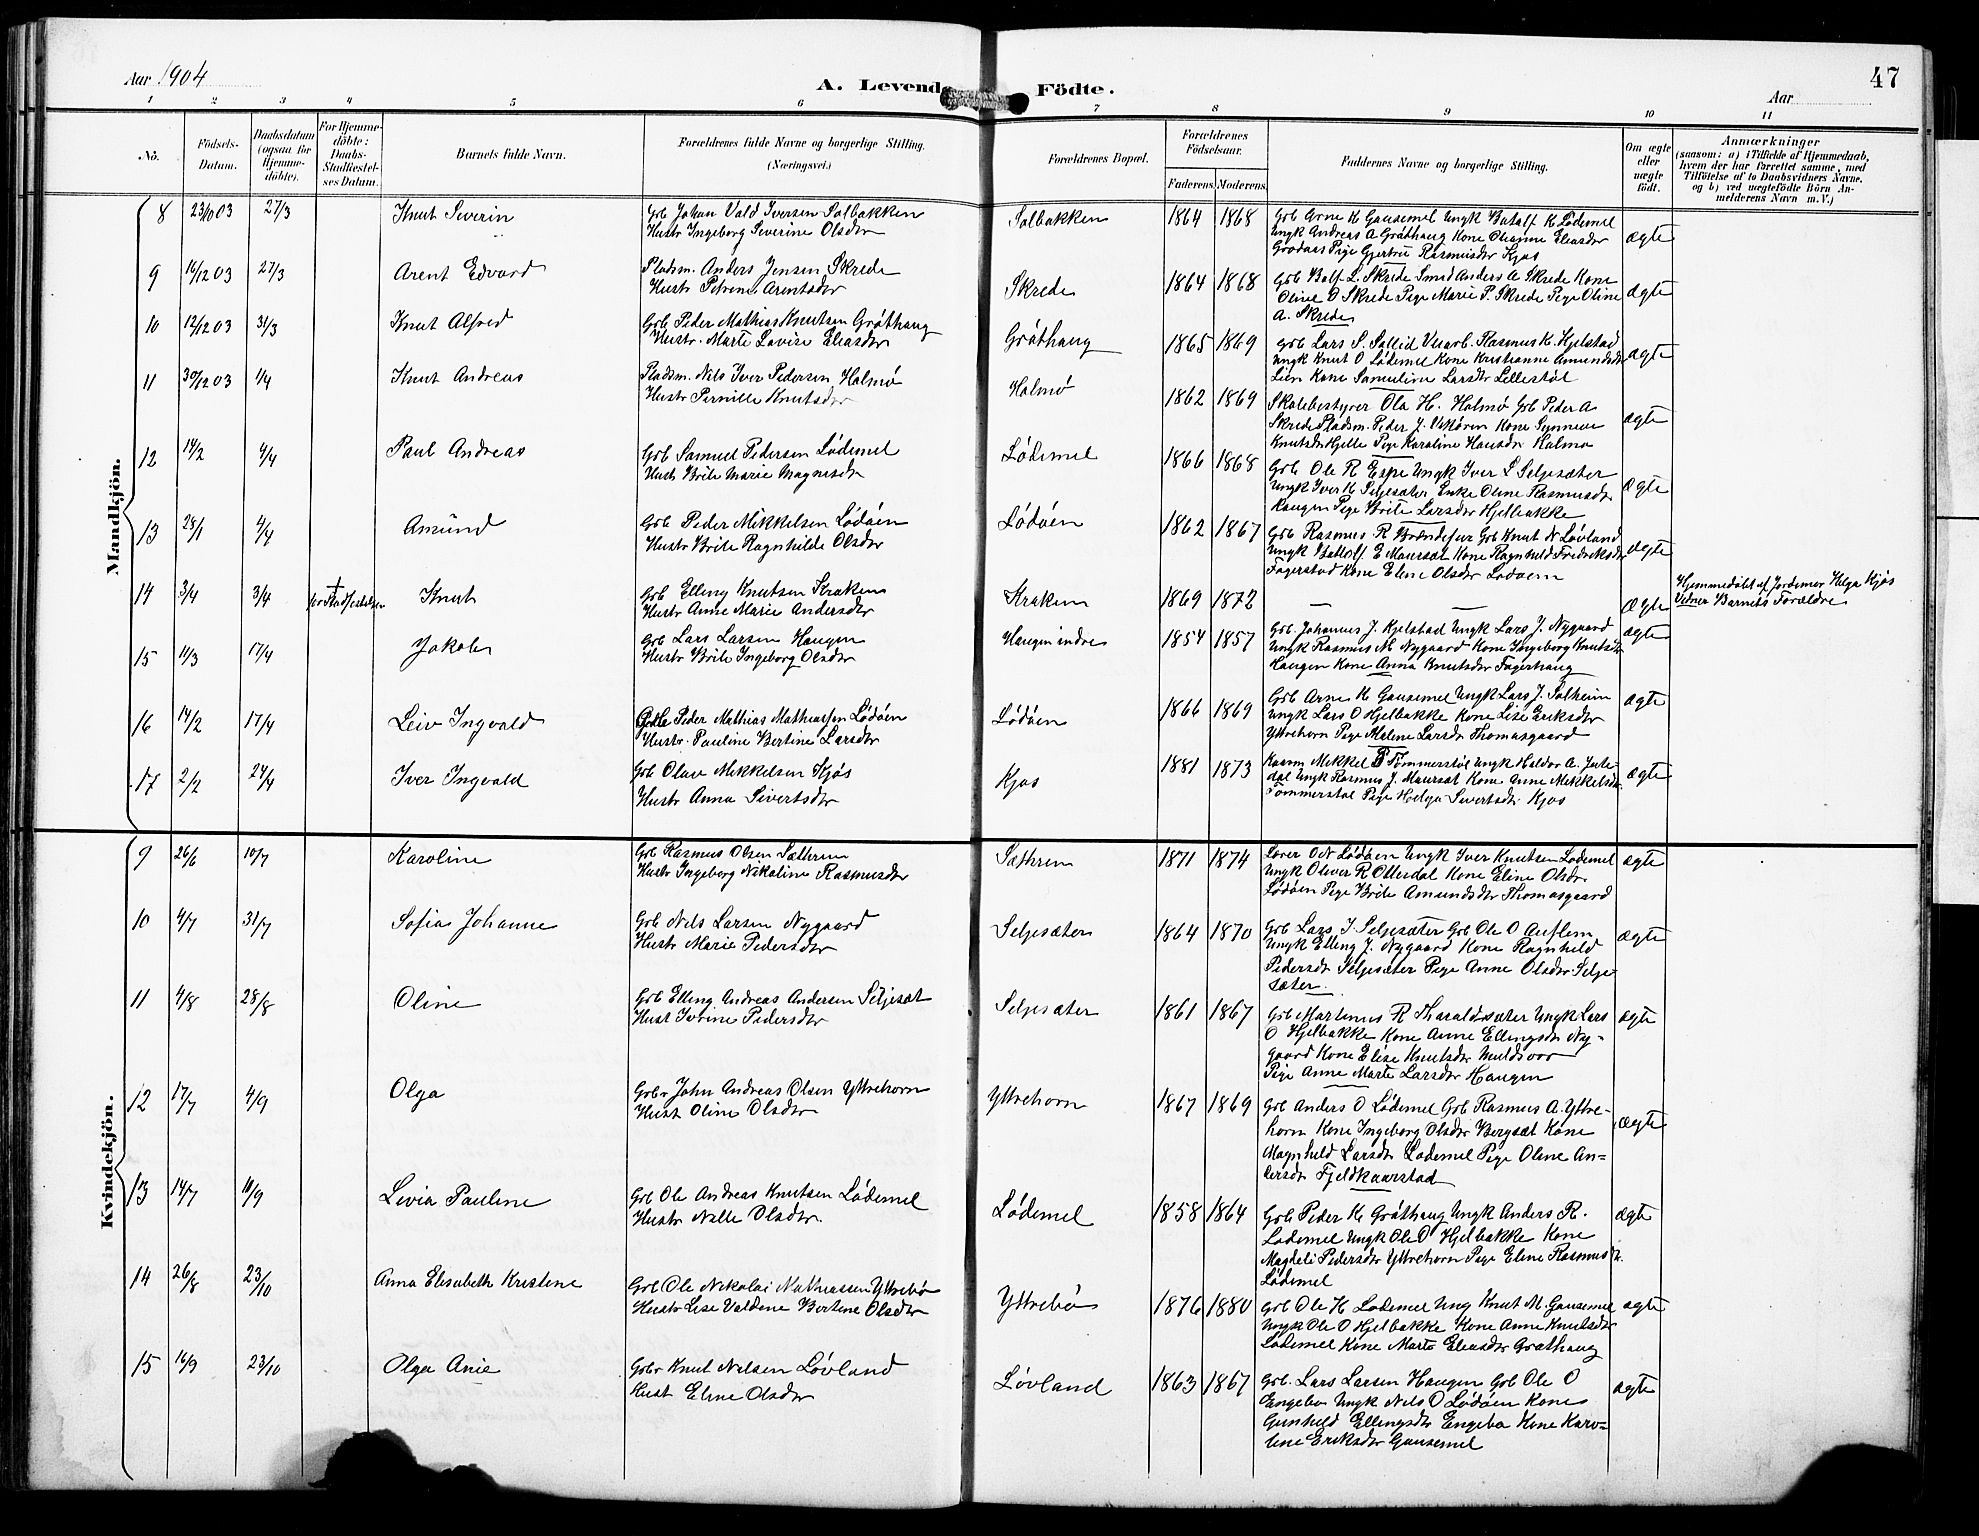 Aar 1904
A. Levende Födte.
47
Aar
1 2 3 4 5 6 7 8 9 10 11
No.
Födsels-Datum.
Daabsdatum (ogsaa for Hjemme-döbte).
For Hjemme-döbte: Daabs-Stadfæstel-ses Datum.
Barnets fulde Navn.
Forældrenes fulde Navne og borgerlige Stilling. (Næringsvei.)
Forældrenes Bopæl.
Forældrenes Födselsaar.
Faderens Moderens
Faddernes Navne og borgerlige Stilling.
Om ægte eller uægte födt.
Anmærkninger (saasom: a) i Tilfælde af Hjemmedaab, hvem der har forrettet samme, med Tilföielse af to Daabsvidners Navne. og b) ved uægtefödte Börn An-melderens Navn m. V.)
Mandkjön.
8 23/10 03 27/3 Knut Severin
Grb Johan Vald Iversen Solbakken
Hustr Ingeborg Severine Olsdtr
Solbakken 1864 1868
Grb Arne K Gausemel Ungk Batolf K Lødemel
Ungk Andreas A Gróthaug Kone Olianne Eliasdtr
Grodaas Pige Gjertru Rasmusdtr Kjos
ægte
9 16/12 03 27/3 Arent Edvard
Pladsm. Anders Jensen Skrede
Hustr Petrine Arentsdtr
Skrede 1864 1868
Grb Bolf L. Skrede Smed Anders A Skrede Kone
Oline O Skrede Pige Marie P. Skrede Pige Oline
A. Skrede
ægte
10 12/12 03 31/3 Knut Alfred
Grb Peder Mathias Knutsen Gróthaug
Hustr. Marte Lovise Eliasdtr
Gróthaug 1865 1869
Grb Lars S. Sollid Rasmus K. Hjelstad
Ungk Knut O Lødemel Kone Kristianne Amundsdtr
Lien Kone Samueline Larsdtr Lillestøl
ægte
11 30/12 03 1/4 Knut Andreas
Pladsm. Nils Iver Pedersen Holmø
Hustr Pernille Knutsdtr
Holmø 1862 1869
Skolebestyrer Ola H. Holmø Grb Peder A
Skrede Pladsm. Peder J. Kone Synneve
Knutsdtr Hjelle Pige Karoline Hansdtr Holmø
ægte
12 14/2 4/4 Paul Andreas
Grb Samuel Pedersen Lødemel
Hust Brite Marie Magnusdtr
Lødemel 1866 1868
Grb Ole R Espe Ungk Iver L Seljesæter
Ungk Iver K Seljesæter Enke Oline Rasmusdtr
Haugen Pige Brite Larsdtr Hjelbakke
ægte
13 28/1 4/4 Amund
Grb Peder Mikkelsen Lødóen
Hustr Brite Ragnhilde Olsdtr
Lødóen 1862 1867
Grb Rasmus R Grb Knut N Løvland
Ungk Battolf E Maursæt Kone Ragnhild Fredriksdtr
Fagerstad Kone Eline Olsdtr Lødøen
ægte
14 3/4 3/4 † før Stadfæstelsen Knut
Grb Elling Knutsen Kraken
Hustr Anne Marie Andersdtr
Kraken 1869 1872
— —
Ægte
Hjemmedøbt af Jordemor Helga Kjøs
Vidner Barnets Forældre
15 11/3 17/4 Jakob
Grb Lars Larsen Haugen
Hustr Brite Ingeborg Olsdtr
Haugen indre 1854 1857
Grb Johannes J. Kjelstad Ungk Lars J. Nygaard
Ungk Rasmus N. Nygaard Kone Ingeborg Knutsdtr
Haugen Kone Anna Knutsdtr Fagerhaug
ægte
16 14/2 17/4 Leiv Ingvald
Peder Mathias Mathiassen Lødóen
Hustr. Pauline Bertine Larsdtr
Lødóen 1866 1869
Grb Arne K Gausemel Ungk Lars J. Solheim
Ungk Lars O Hjelbakke Kone Lise Eriksdtr
Yttrehorn Pige Malene Larsdtr Thomasgaard
ægte
17 2/2 24/4 Iver Ingvald
Grb Olav Mikkelsen Kjøs
Hustr Anna Sivertsdtr
Kjos 1881 1873
Mikkel P Tommerstøl Ungk Haldor A.
dal Ungk Rasmus J. Maursæt Kone Anne Mikkelsdtr
Tommerstøl Pige Helga Sivertsdtr Kjos
ægte
Kvindekjön.
9 26/6 10/7 Karoline
Grb Rasmus Olsen Sæthren
Hustr Ingeborg Nikoline Rasmusdtr
Sæthren 1871 1874
Lærer O N Lødóen Ungk Iver Knutsen Lødemel
Ungk Oliver R Otterdal Kone Eline Olsdtr
Lødóen Pige Brite Amundsdtr Thomasgaard
ægte
10 4/7 31/7 Sofia Johanne
Grb Nils Larsen Nygaard
Hustr Marie Pedersdtr
Seljesæter 1864 1870
Grb Lars I. Seljesæter Grb Ole O Auflem
Ungk Elling J. Nygaard Kone Ragnhild
Pedersdtr Seljesæter Pige Anne Olsdtr Selje-
sæter.
ægte
11 4/8 28/8 Oline
Grb Elling Andreas Andersen Seljesæt
Hust Iverine Pedersdtr
Seljesæter 1861 1867
Grb Martenus R Tharaldsæter Ungk Lars
O Hjelbakke Kone Anne Ellingsdtr Ny-
gaard Kone Elise Knutsdtr Muldsvor
Pige Anne Marte Larsdtr Haugen
ægte
12 17/7 4/9 Olga
Grbr John Andreas Olsen Yttrehorn
Hust Oline Olsdtr
Yttrehorn 1867 1869
Grb Anders O Lødemel Grb Rasmus A. Yttre-
horn Kone Ingeborg Olsdtr Bergsæt Kone
Magnhild Larsdtr Lødemel Pige Oline An-
dersdtr Fjeldkaarstad
ægte
13 14/7 11/9 Livia Pauline
Grb Ole Andreas Knutsen Lødemel
Hustr Nille Olsdtr.
Lødemel 1858 1864
Grb Peder K Gróthaug Ungk Anders R.
Lødemel Ungk Ole O Hjelbakke Kone
Magdeli Pedersdtr Yttrehorn Pige Eline Rasmusdtr.
Lødemel
ægte
14 26/8 23/10 Anna Elisabeth Kristine
Grb Ole Nikolai Mathiassen Yttrebø
Hustr Lise Valdine Bertine Olsdtr
Yttrebø 1876 1880
Grb Ole H Lødemel Ung Knut M. Gausemel
Ungk Ole O Hjelbakke Kone Anne Knutsdtr
Lødemel Kone Marte Eliasdtr Gróthaug
ægte
15 16/9 23/10 Olga Anie
Grbr Knut Nilsen Løvland
Hust Eline Olsdtr
Løvland 1863 1867
Grb. Lars Larsen Haugen Grb Ole O
Engebø Ungk Nils O Lødóen Kone
Gunhild Ellingsdtr Engebø Kone Karo-
line Eriksdtr Gausemel
ægte